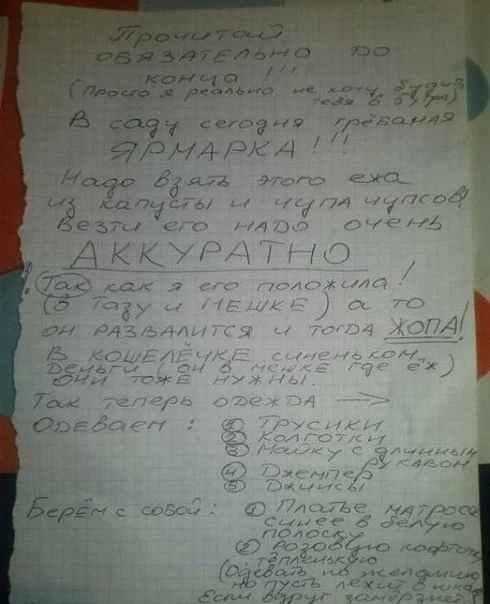 Прочитай
ОБЯЗАТЕЛЬНО ДО
конца !!!
(Просто я реально не хочу будить
тебя в 5 утра)
В саду сегодня грёбаная
ЯРМАРКА!!!
Надо взять этого ежа
из капусты и чупа чупсов!
Везти его надо очень
АККУРАТНО
! Так как я его положила!
(в тазу и мешке) а то
он развалится и тогда ЖОПА!
В кошелёчке синеньком
деньги (он в мешке где ёж)
они тоже нужны.
Так теперь одежда →
Одеваем: ① Трусики
② Колготки
③ Майку с длинным
рукавом
④ Джемпер
⑤ Джинсы
Берём с собой: ① Платье матроса
синее в белую
полоску
② розовую кофточку
тёпленькую
(Одевать по желанию
но пусть лежит в шкаф
Если вдруг замёрзнет